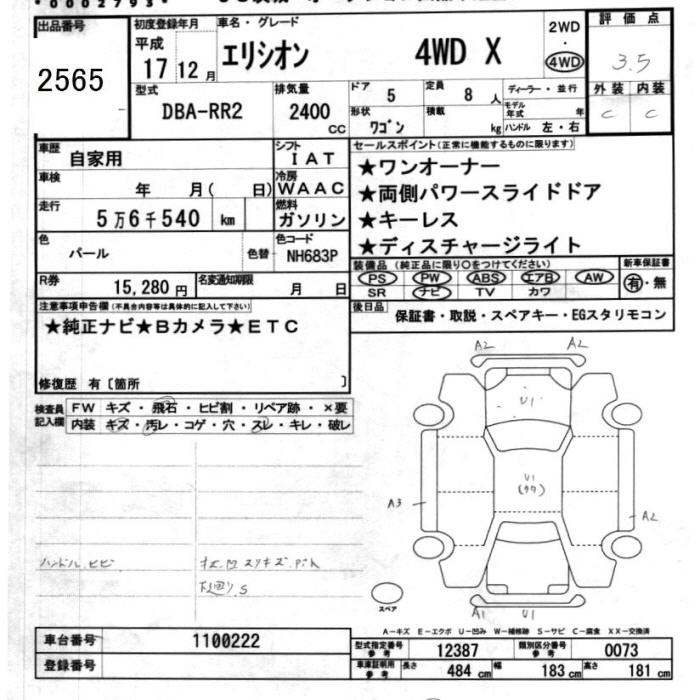 *0002793*
出品番号
2565
初度登録年月
平成
17 12 月
車名・グレード
エリシオン 4WD X
2WD
・
4WD
評価点
3.5
外装 内装
C C
型式
DBA-RR2
排気量
2400
CC
ドア 5
定員 8 人
ディーラー・並行
形状 ワゴン
積載 kg
モデル年式 年
ハンドル 左・右
車歴
自家用
シフト
IAT
車検
年 月( 日)
冷房
WAAC
走行
5万6千540 km
燃料
ガソリン
色
パール
色替
色コード
NH683P
R券
15,280円
名変通知期限
月 日
セールスポイント(正常に機能するものに限ります)
★ワンオーナー
★両側パワースライドドア
★キーレス
★ディスチャージライト
装備品(純正品に限り○をつけてください)
PS PW ABS エアB AW
SR ナビ TV カワ
新車保証書
有・無
後日品
保証書・取説・スペアキー・EGスタリモコン
注意事項申告欄(不具合内容等は具体的に記入して下さい)
★純正ナビ★Bカメラ★ETC
修復歴 有〔箇所 〕
検査員
記入欄
FW キズ・飛石・ヒビ割・リペア跡・×要
内装 キズ・汚レ・コゲ・穴・スレ・キレ・破レ
ハンドル ヒビ
下廻り S
A2 A2
U1
U1
A3
A2
A1 U1
スペア
A-キズ E-エクボ U-凹み W-補修跡 S-サビ C-腐食 XX-交換済
車台番号
1100222
登録番号
型式指定番号
参考
12387
類別区分番号
参考
0073
車庫証明用
参考
長さ 484 cm 幅 183 cm 高さ 181 cm